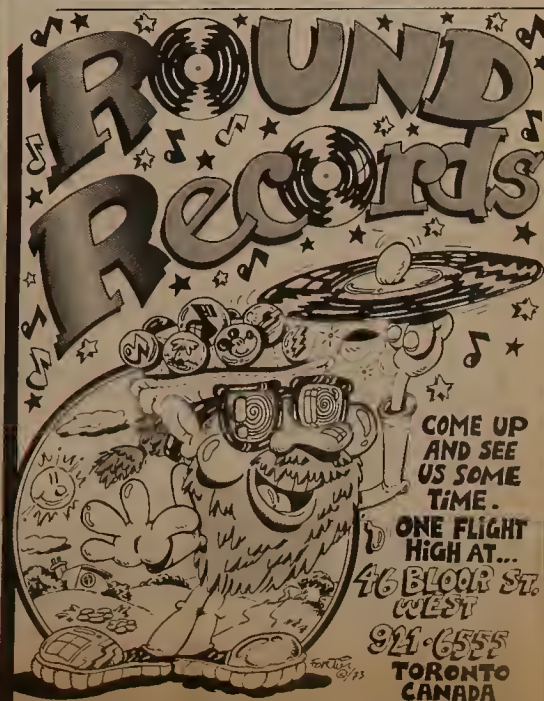 ROUND
Records
COME UP
AND SEE
US SOME
TiME.
ONE FLIGHT
HiGH AT...
46 BLOOR ST.
WEST
921-6555
TORONTO
CANADA